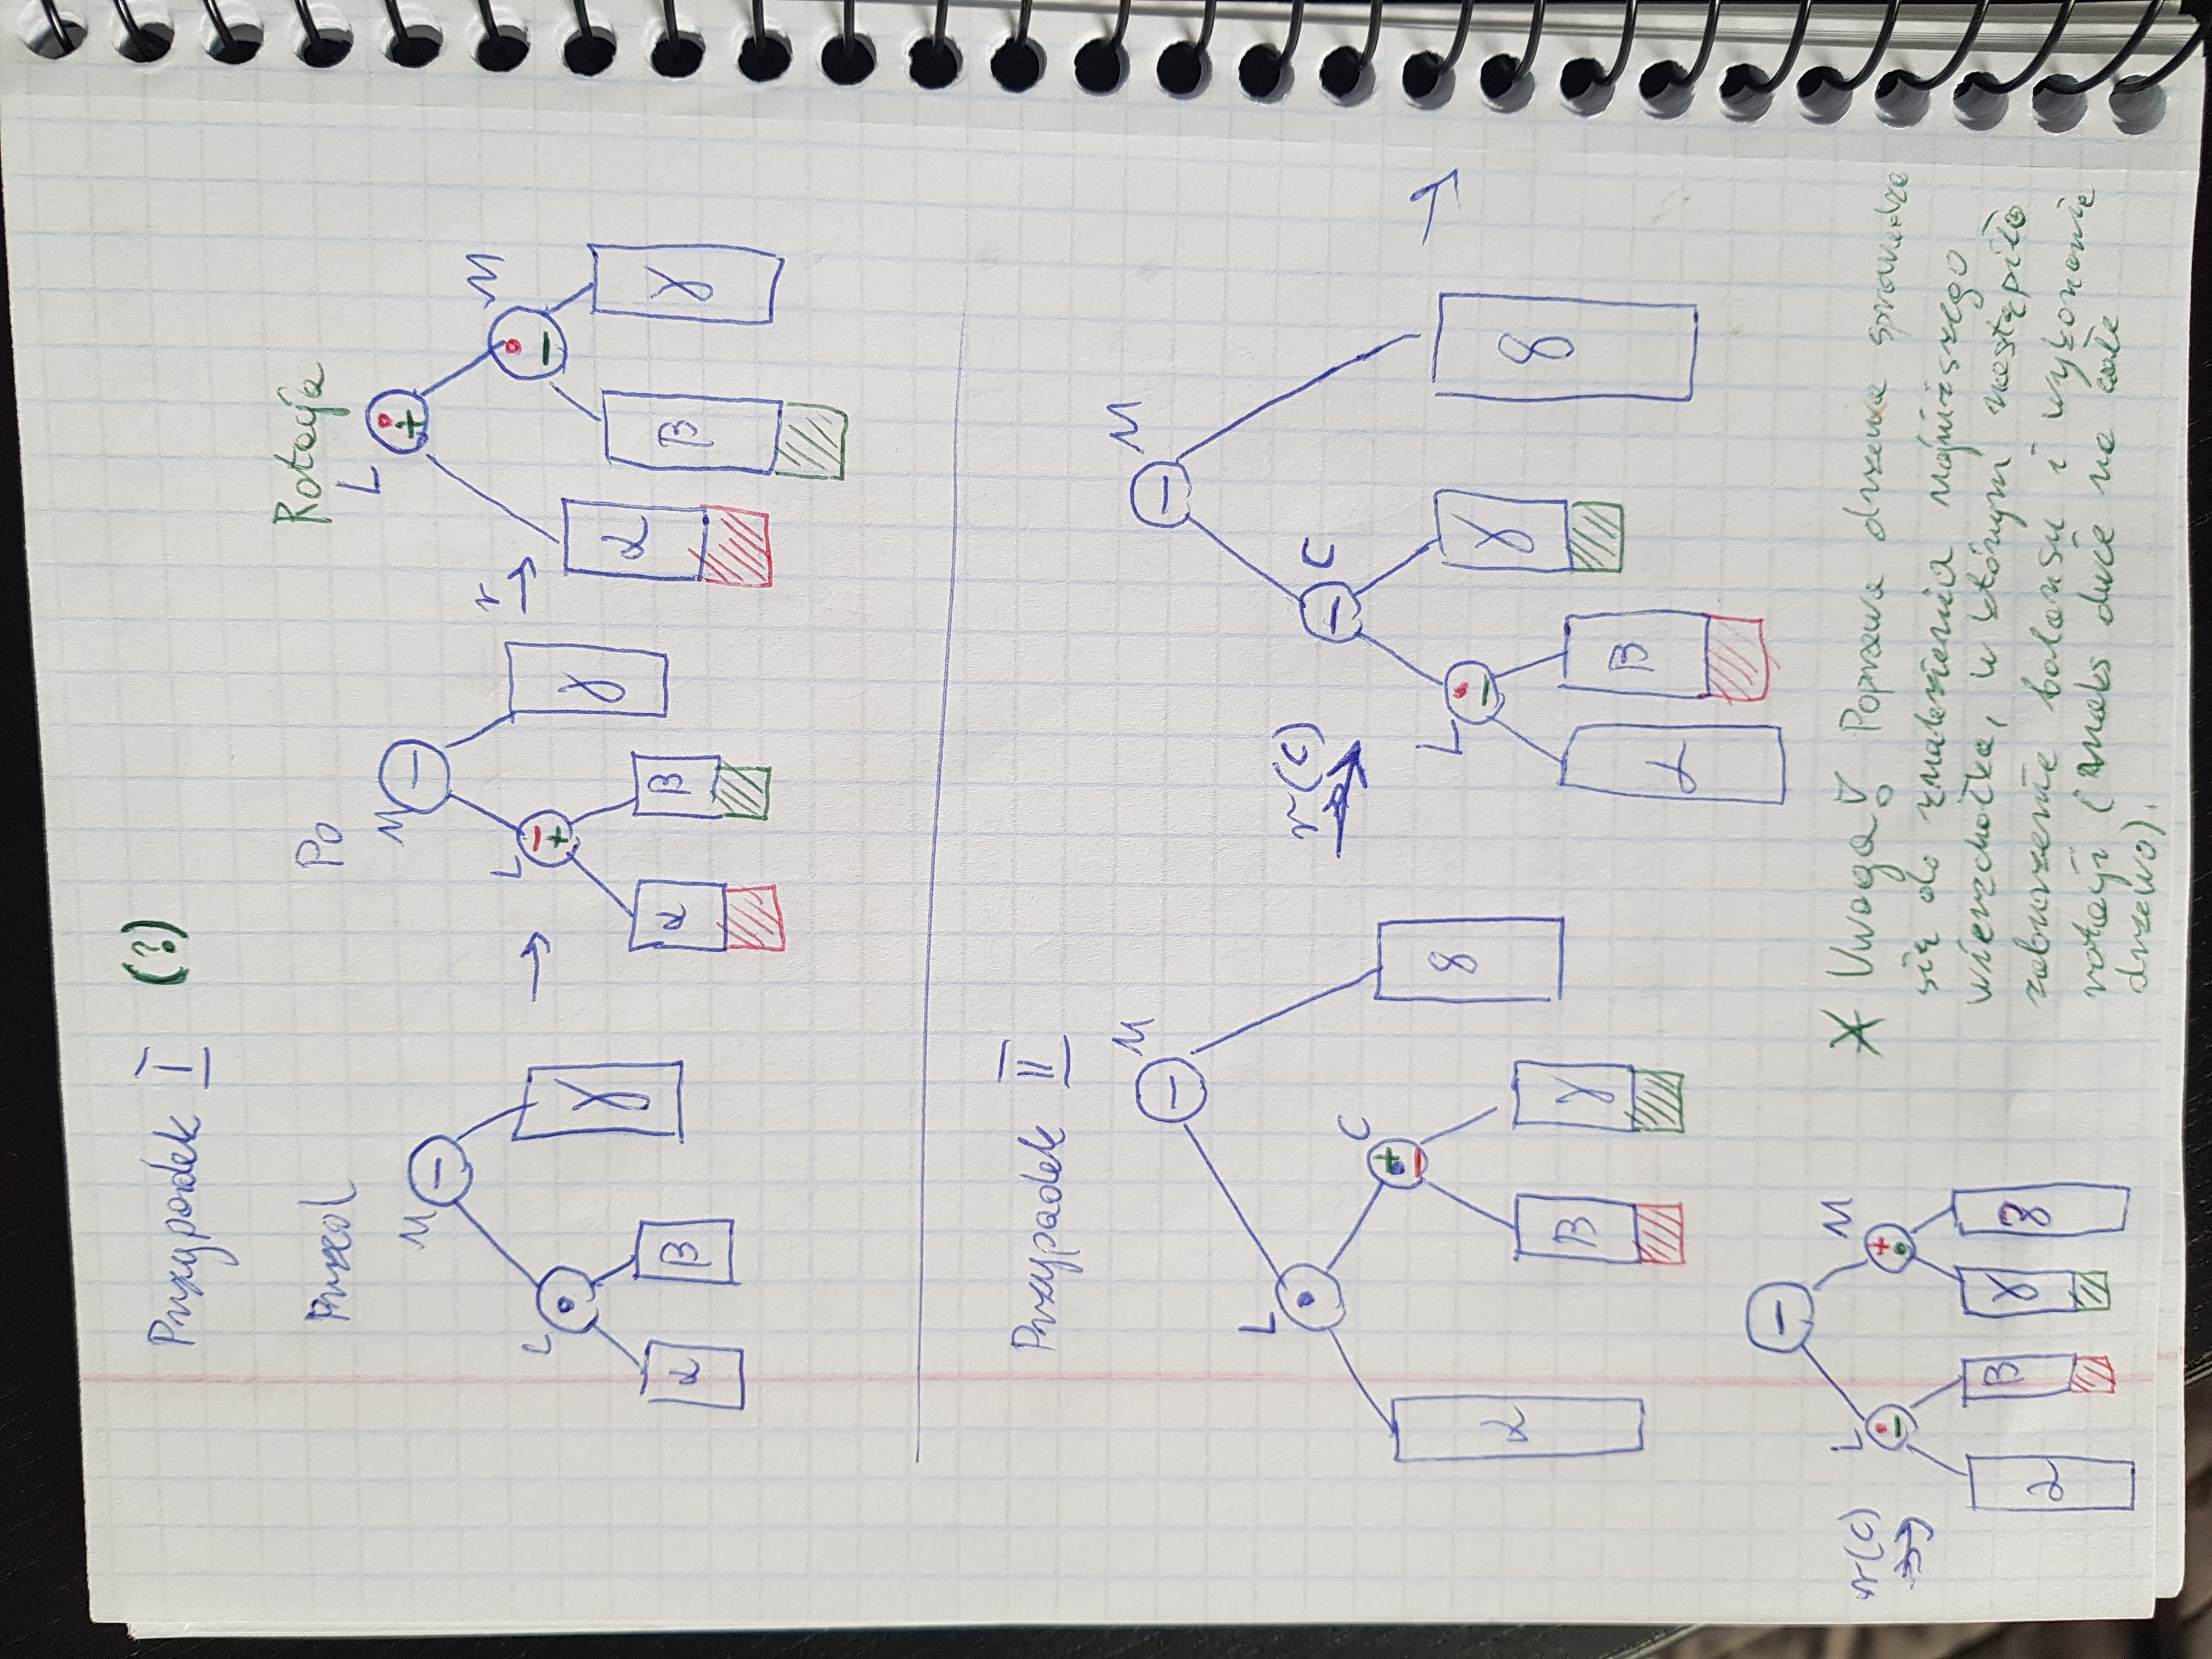 Przypadek I (?)
Przed Po Rotacja
M − L • α β γ
→
M − L − + α β γ
r →
L • + M • − α β γ
Przypadek II
M − L • C + • − α β γ δ
r(C)
M − C − L • − α β γ δ
→
r(C)
− L • − M + • α β γ δ
* Uwaga! Poprawa drzewa sprowadza
się do znalezienia najniższego
wierzchołka, w którym nastąpiło
zaburzenie balansu i wykonanie
rotacji (maks dwie na całe
drzewo).